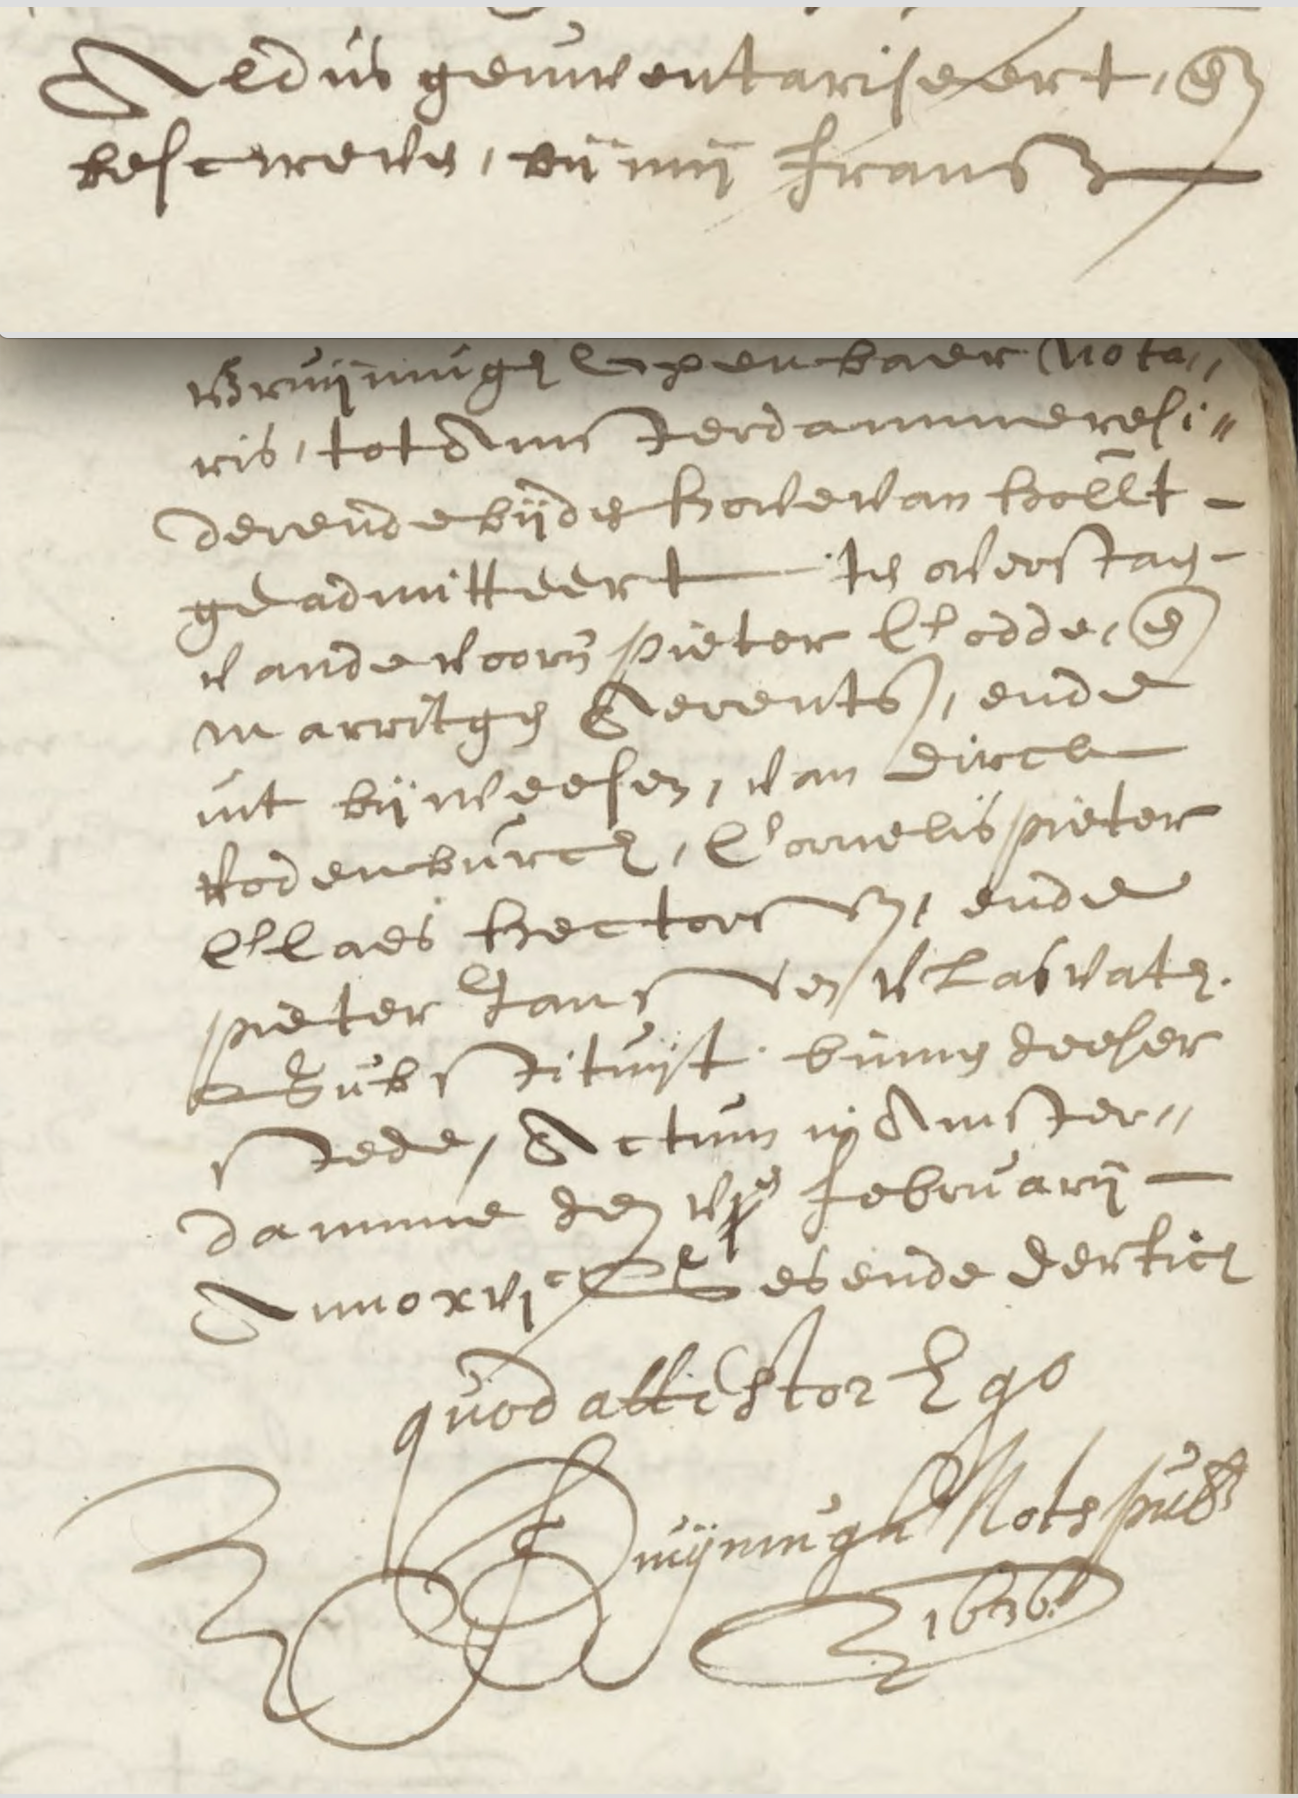 Aldus geinventariseert, en̄
bescreven, bij mij Frans
Bruijningh Openbaer Nota,,
ris, tot Amsterdamme resi,,
derende bijden hove van Hollt -
geadmitteert ten overstaen -
vande voorn̄ Pieter Codde, en̄
Marritgen Aerents, ende
int bijweesen, van Dirck
Rodenburch, Cornelis Pieter
Claes Hectorsz, ende
Pieter Jansen Vlasvath.
Substituijt binnen deeser
stede, Actum in Amster,,
damme den februarij -
Anno xvjc ses ende dertich
quod attestor Ego
Bruijningh Nots pub
1636